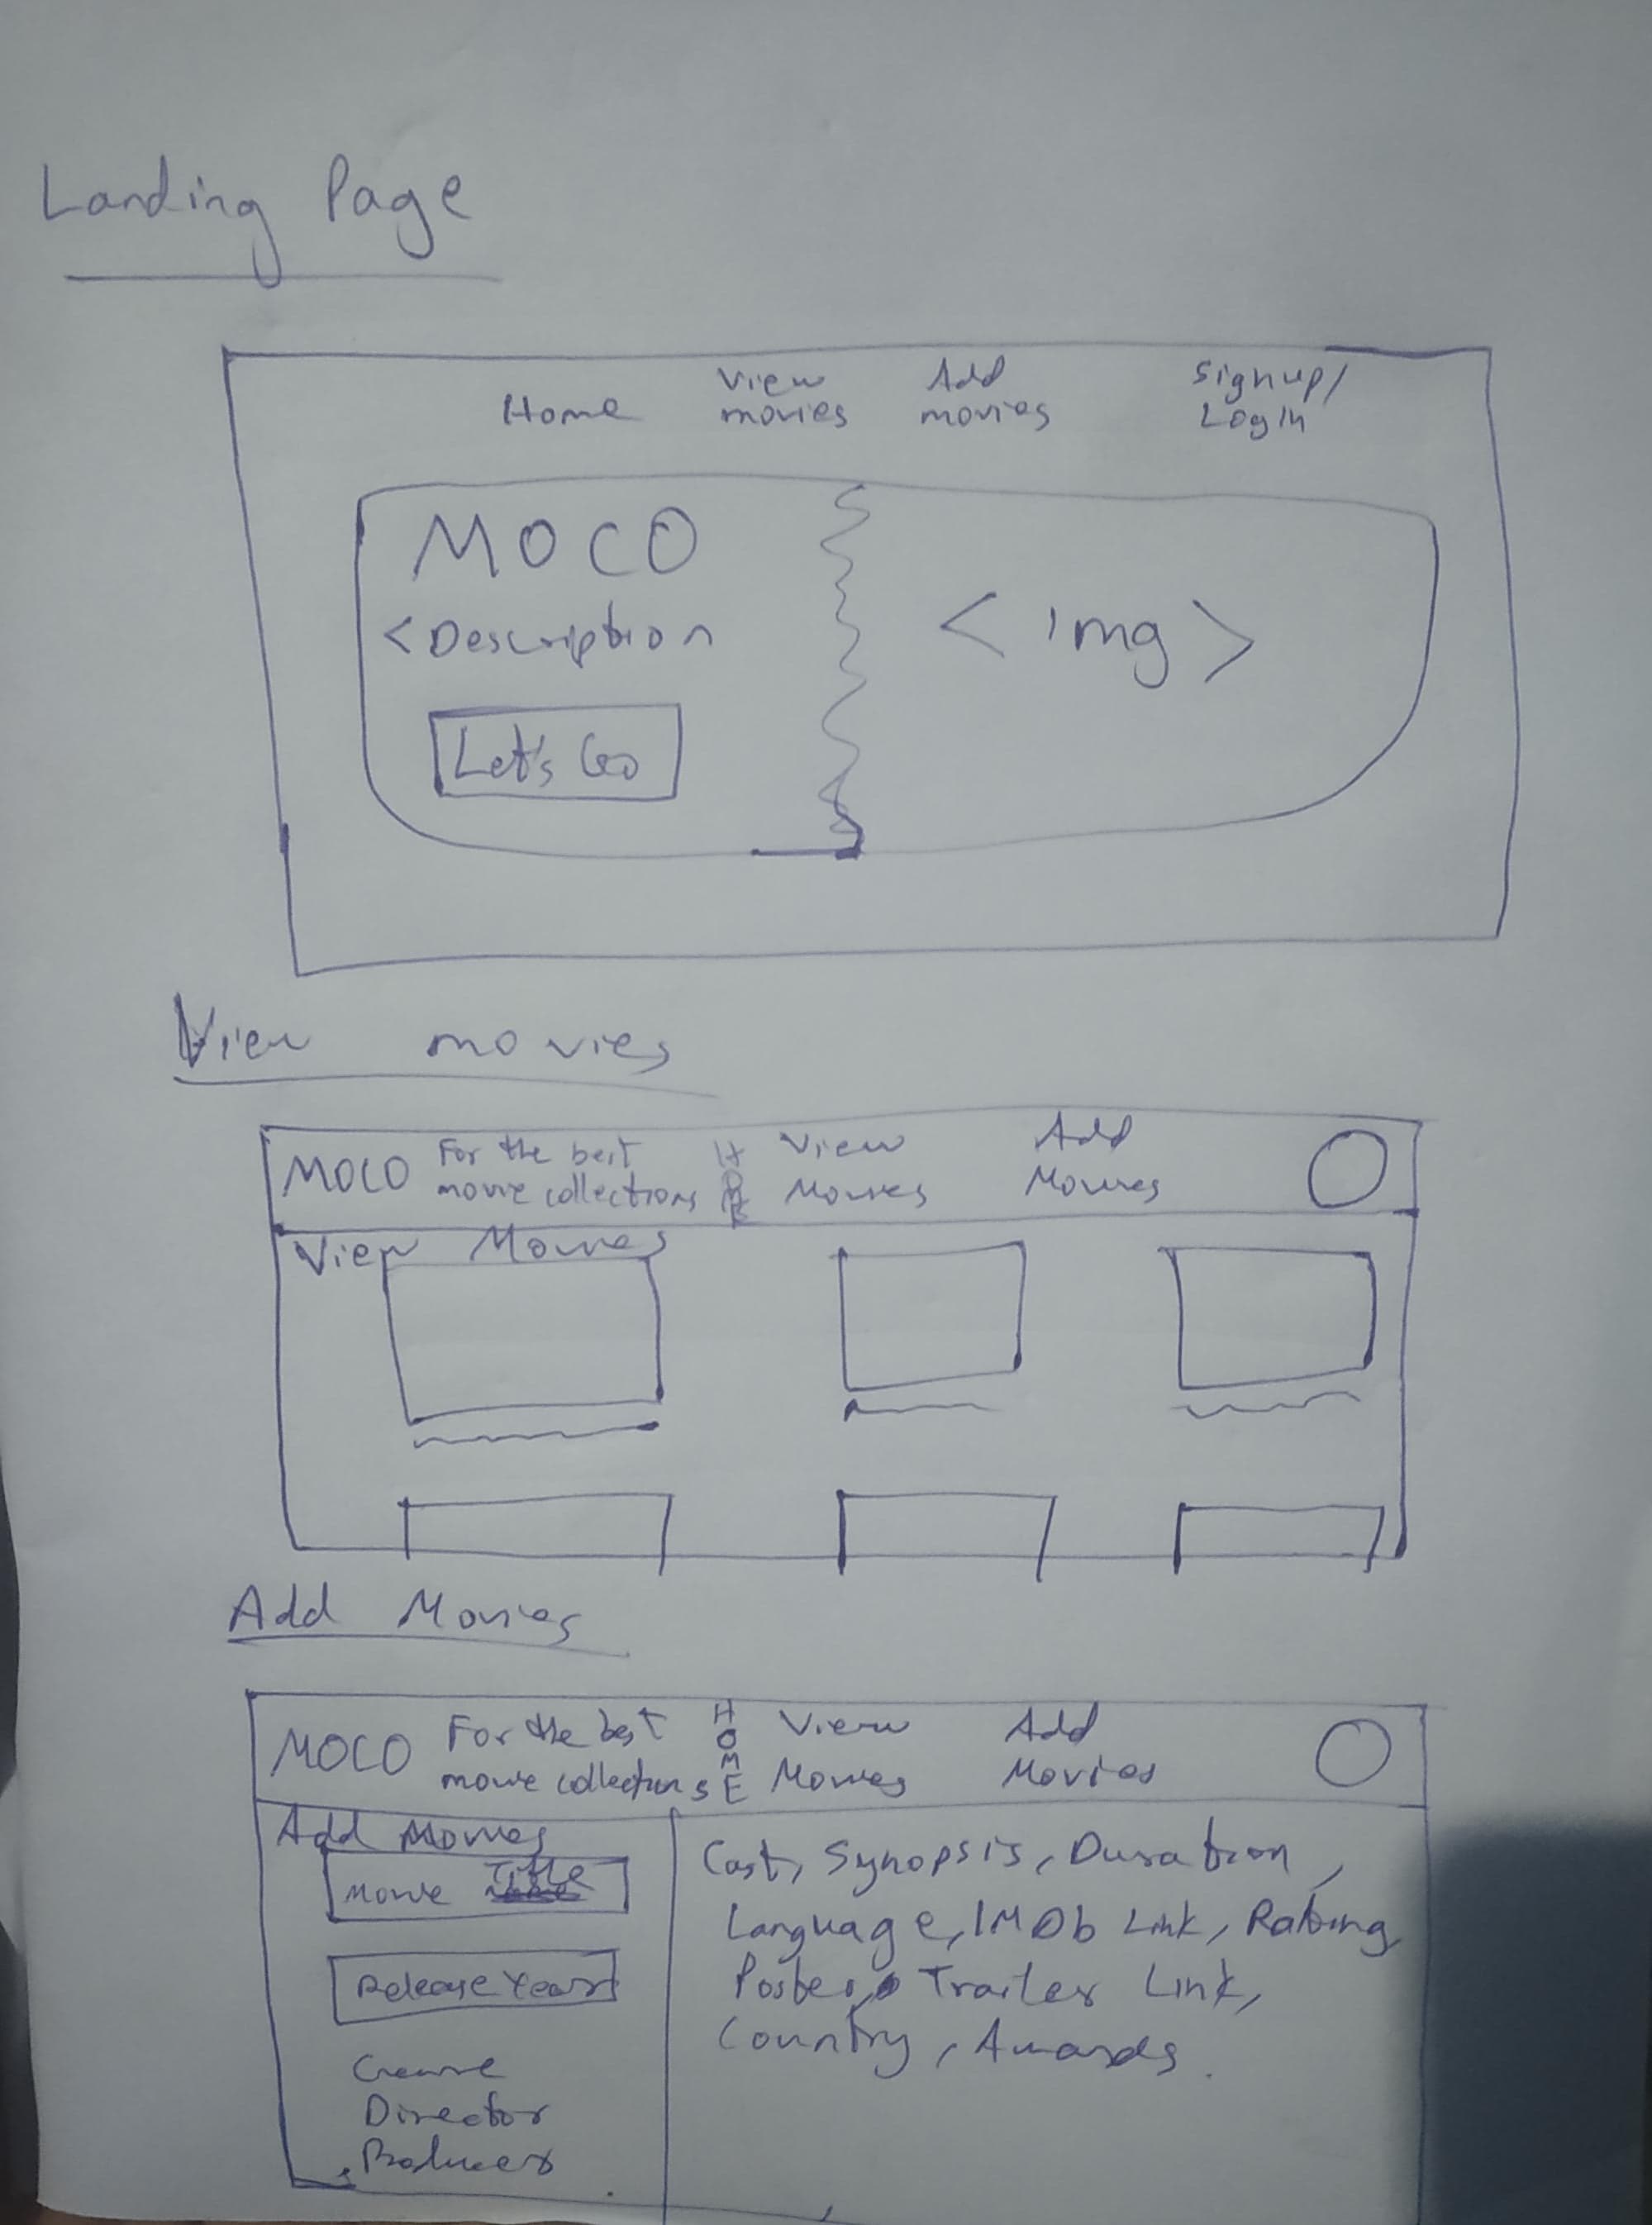 Landing Page
Home View movies Add movies Signup/ Login
MOCO
<Description
<img>
Let's Go
View movies
MOCO For the best movie collections HOME View Movies Add Movies
View Movies
Add Movies
MOCO For the best movie collections HOME View Movies Add Movies
Add Movies
Movie Title
Release Year
Genre
Director
Producer
Cast, Synopsis, Duration,
Language, IMDb Link, Rating,
Poster, Trailer Link,
Country, Awards.